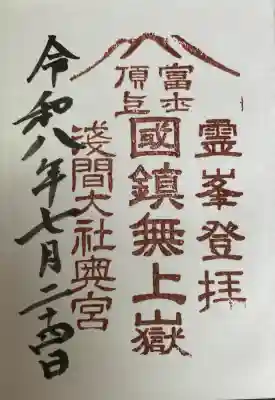 霊峯登拝
富士
頂上
國鎮無上嶽
淺間大社奥宮
令和八年七月二十四日